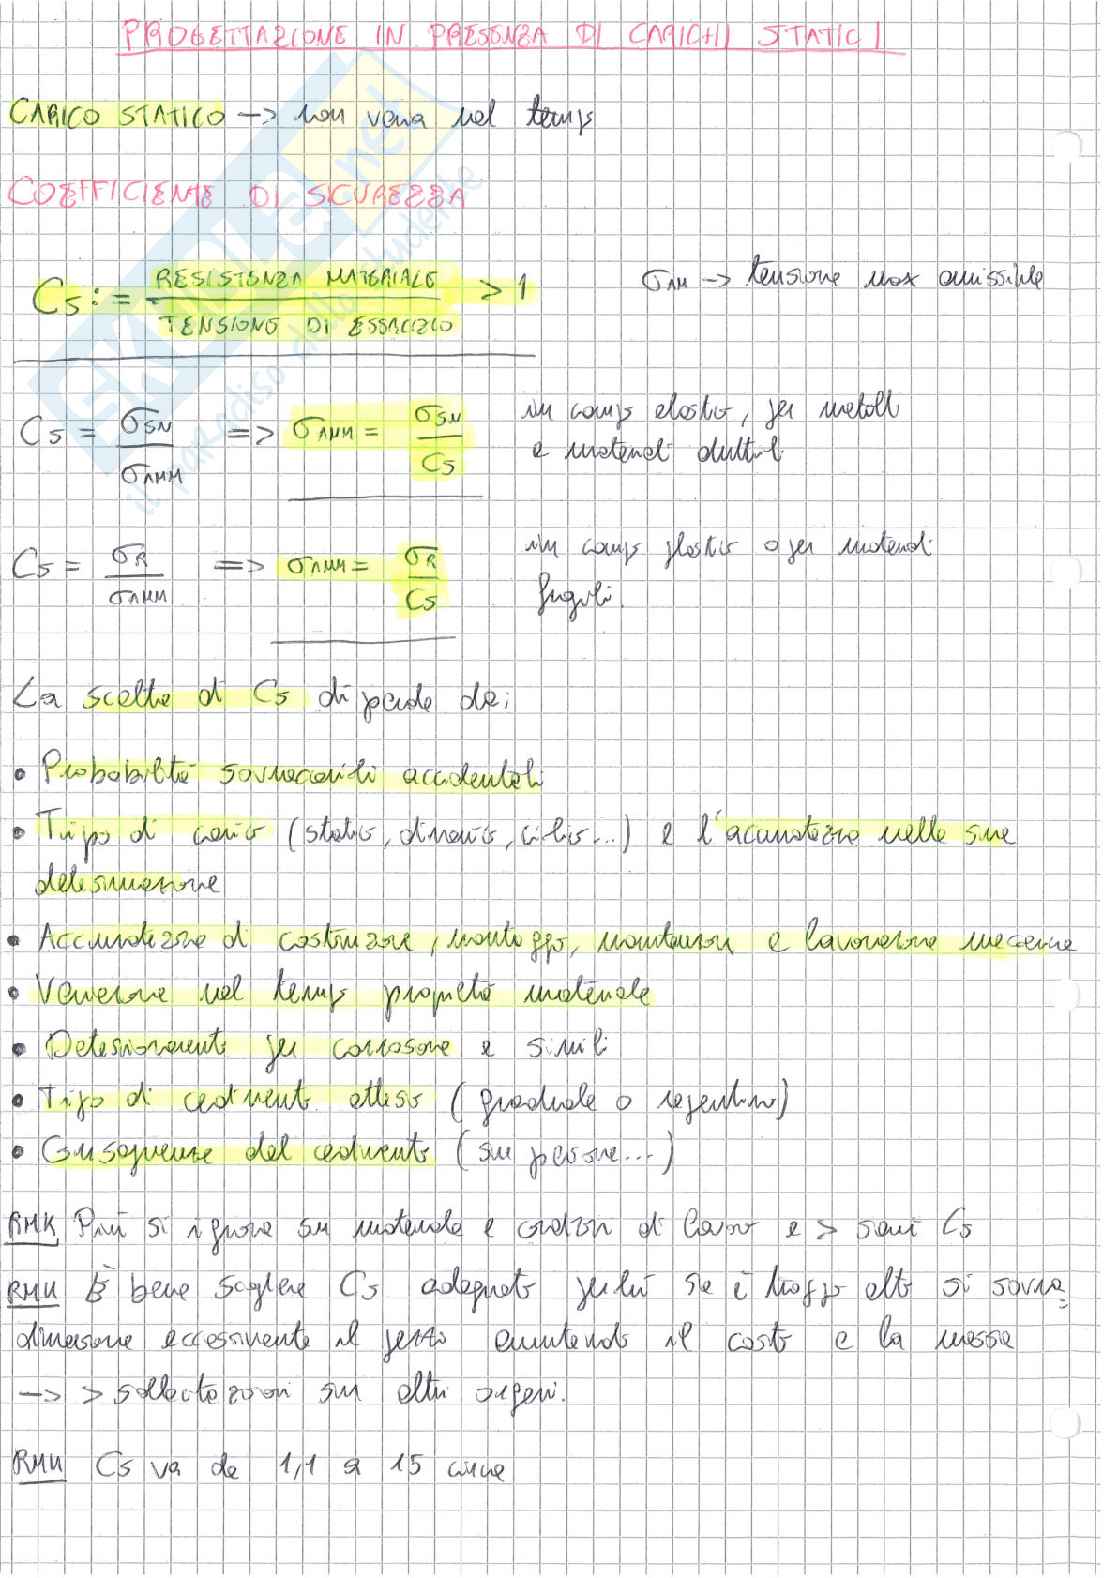 PROGETTAZIONE IN PRESENZA DI CARICHI STATICI
CARICO STATICO -> non varia nel tempo
COEFFICIENTE DI SICUREZZA
Cs := RESISTENZA MATERIALE / TENSIONE DI ESERCIZIO > 1
σAM -> tensione max amissibile
Cs = σSN / σAMM => σAMM = σSN / Cs
in campo elastico, per metalli
e materiali duttili
Cs = σR / σAMM => σAMM = σR / Cs
in campo plastico o per materiali
fragili.
La scelta di Cs dipende da:
• Probabilità sovraccarichi accidentali
• Tipo di carico (statico, dinamico, ciclico...) e l'accuratezza nella sua
determinazione
• Accuratezza di costruzione, montaggio, manutenzione e lavorazione meccanica
• Variazione nel tempo proprietà materiale
• Deterioramento per corrosione e simili
• Tipo di cedimento atteso (graduale o repentino)
• Conseguenze del cedimento (su persone...)
RMK Più si ignora su materiale e condizioni di lavoro e > sarà Cs
RMK È bene scegliere Cs adeguato perché se è troppo alto si sovra=
dimensiona eccessivamente il pezzo aumentando il costo e la massa
-> > sollecitazioni su altri organi.
RMK Cs va da 1,1 a 15 circa
SKUOLA.net
il paradiso dello studente